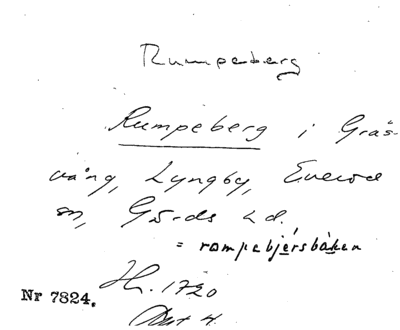 Rumpeberg
Rumpeberg i Gräs-
vång, Lyngby, Everöd
sn, Gärds hd.
= rompebjérsbàken
Hr. 1720
Nr 7824.
Akt 4